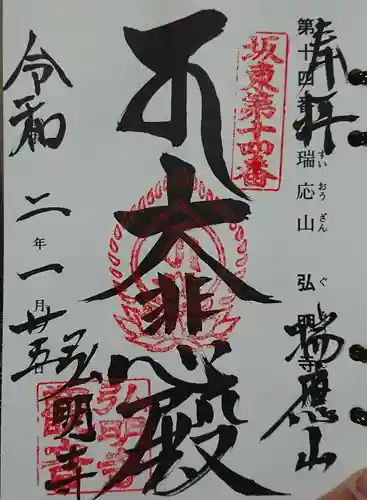 奉拝
第十四番
瑞応山 弘明寺
ずい おう ざん ぐ
瑞應山
坂東第十四番
大悲殿
令和二年一月廿五
弘明寺
弘明寺